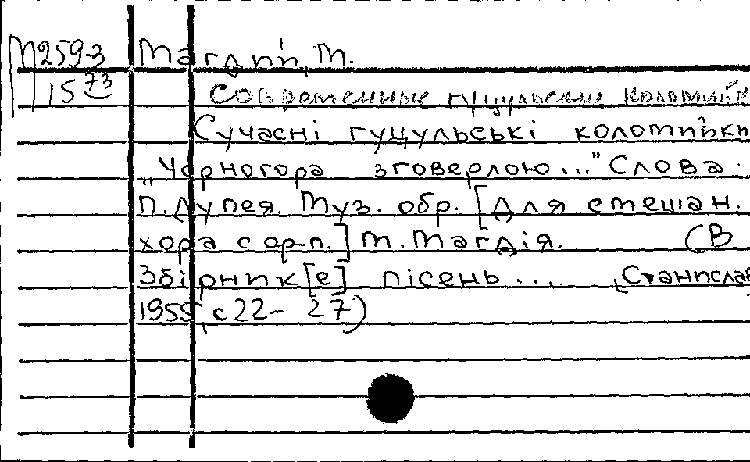 М259-3 Магдий, М.
15 73 Современные гуцульские коломийк
Сучасні гуцульські коломийки
„Чорногора з говерлою..." Слова
П. Дупея. Муз. обр. [для смешан.
хора с орл.] М. Магдія. (В
Збірник[е] пісень... Станислав
1955, с 22- 27)